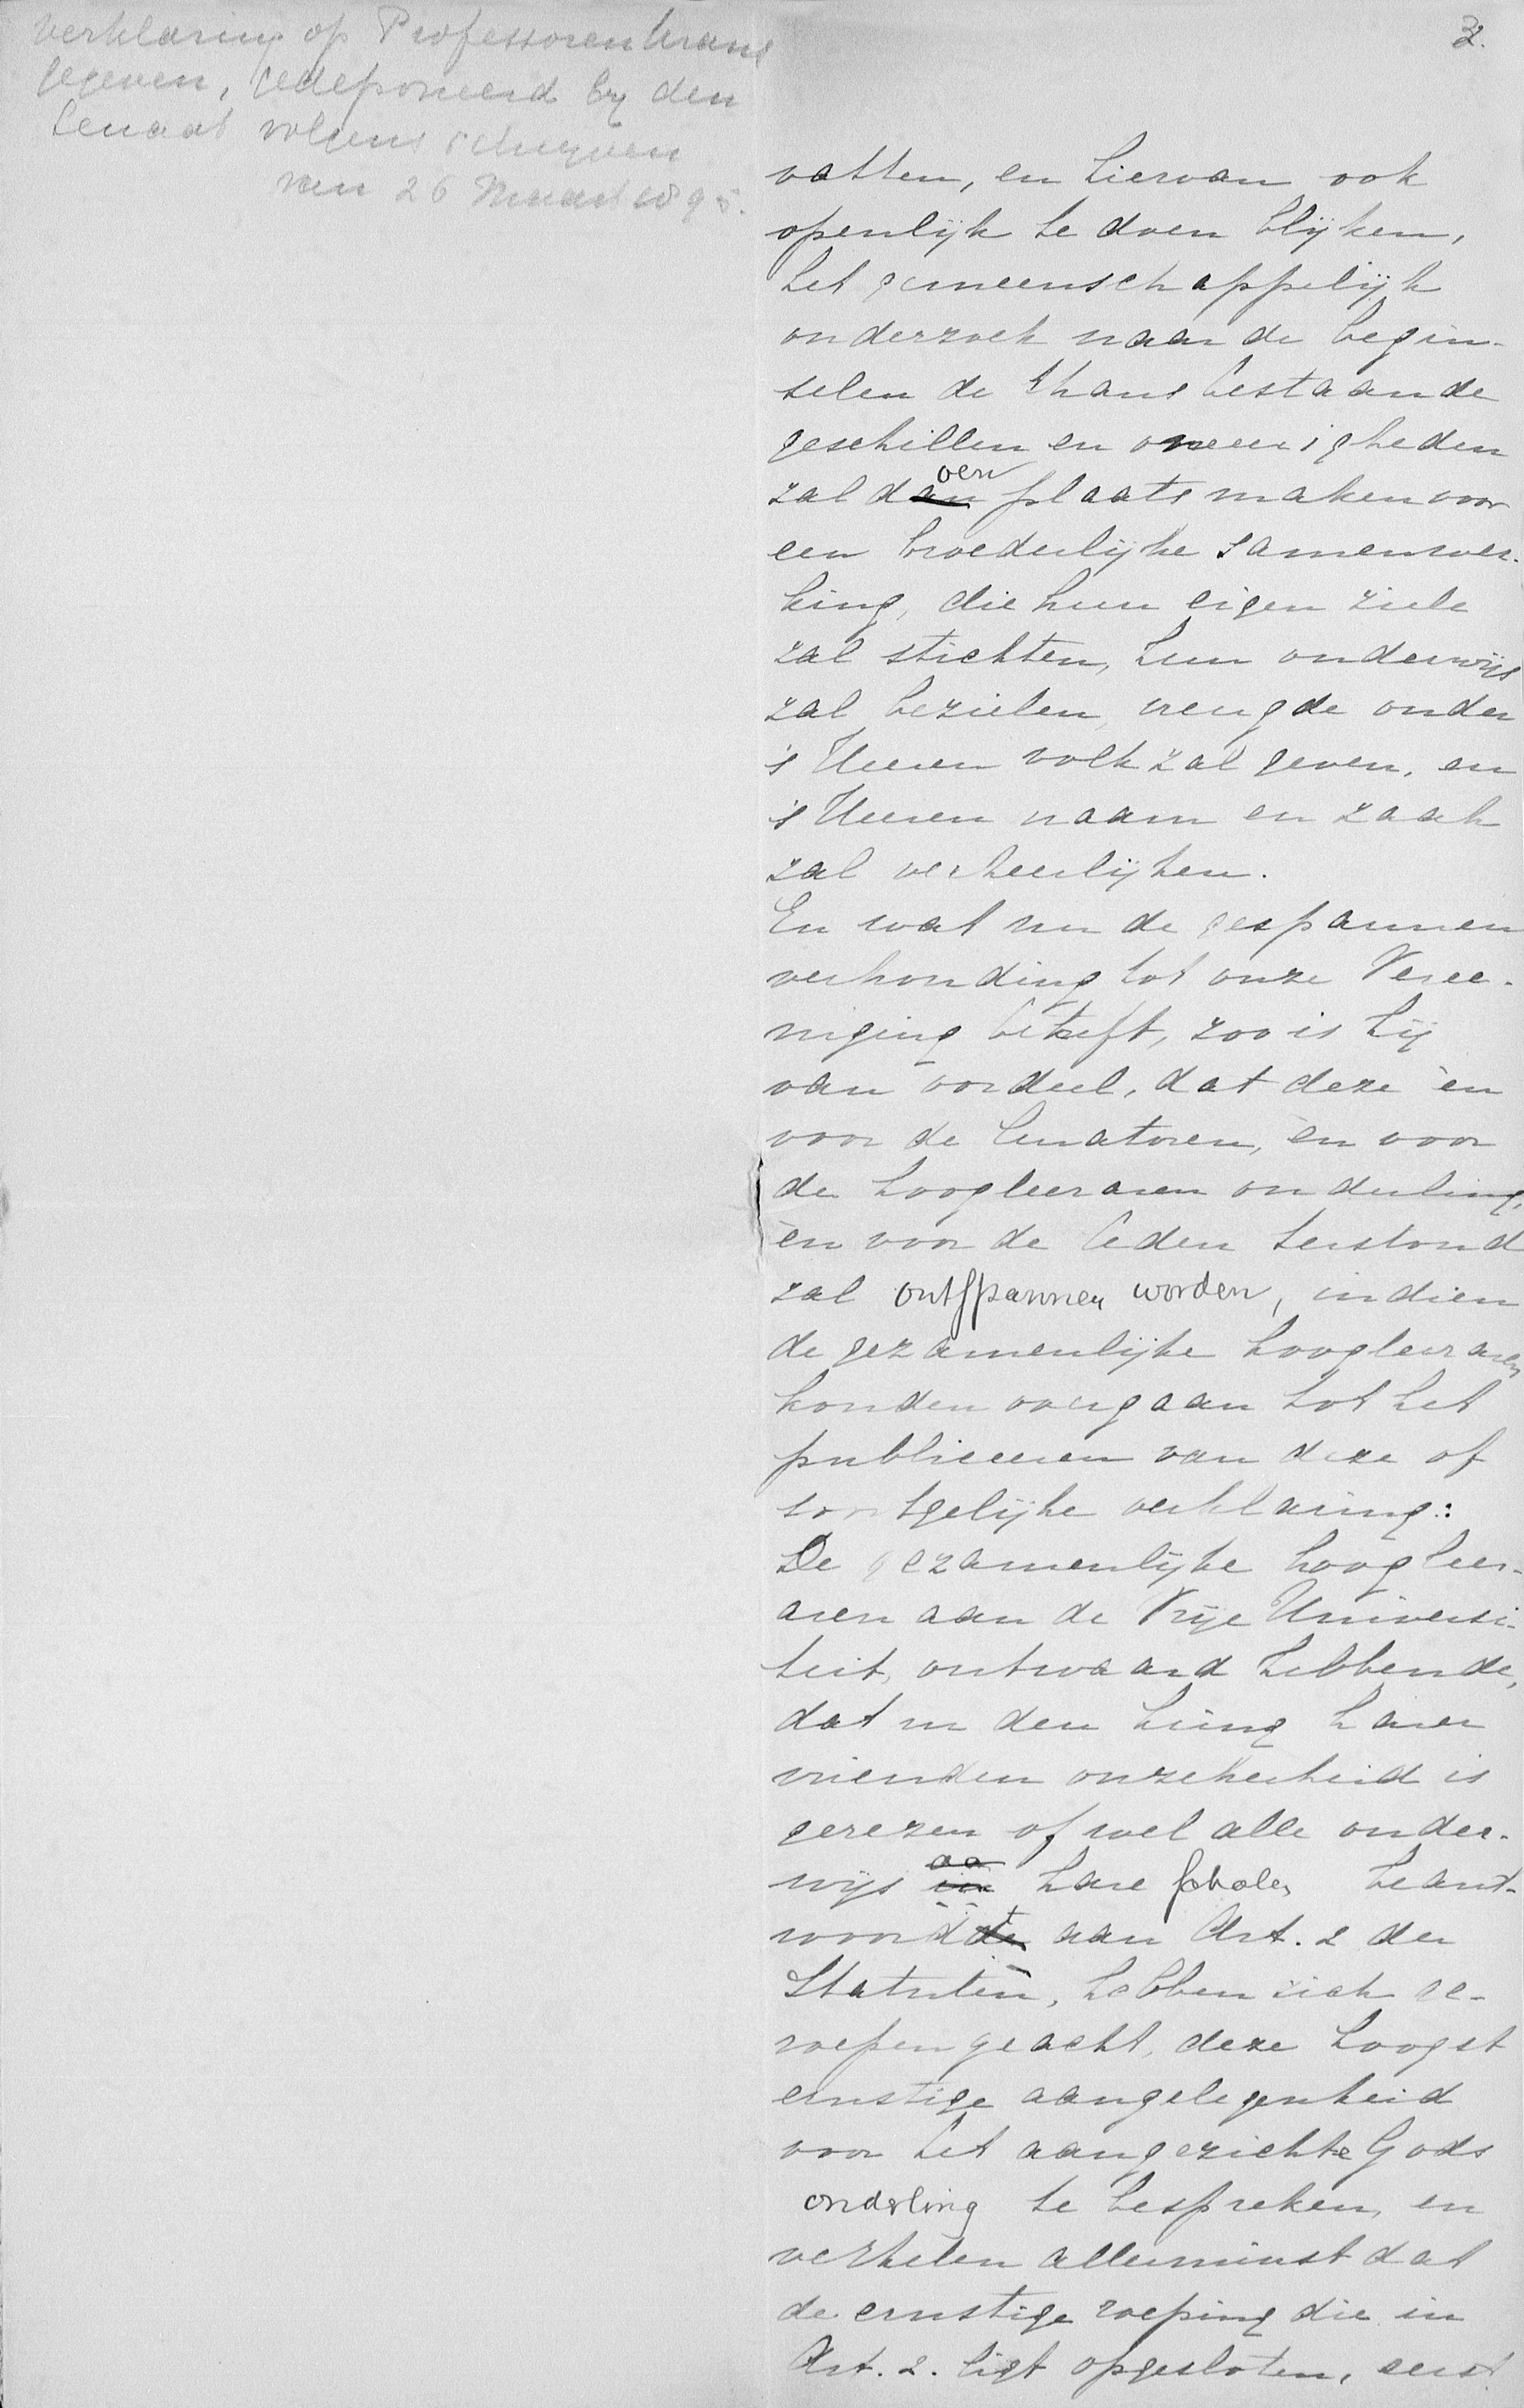 verklaring op Professorenkrans
gegeven, gedeponeerd by den
Senaat volgens schrijven
van 26 Maart 1895.
3.
vatten, en hiervan ook
openlijk te doen blijken,
het gemeenschappelijk
onderzoek naar de begin-
selen de thans bestaande
geschillen en oneenigheden
zal doen plaats maken voor
een broederlijke samenwer-
king, die hun eigen ziele
zal stichten, hun onderwijs
zal bezielen, vreugde onder
's Heeren volk zal geven, en
's Heeren naam en zaak
zal verheerlijken.
En wat nu de gespannen
verhouding tot onze Veree-
niging betreft, zoo is hij
van oordeel, dat deze èn
voor de Curatoren, èn voor
de hoogleeraren onderling,
èn voor de leden terstond
zal ontspannen worden, indien
de gezamenlijke hoogleeraren
konden overgaan tot het
publiceeren van deze of
soortgelijke verklaring:
De gezamenlijke hoogleer-
aren aan de Vrije Universi-
teit, ontwaard hebbende,
dat in den kring harer
vrienden onzekerheid is
gerezen of wel alle onder-
wijs in hare scholen beant-
woordt aan Art. 2 der
Statuten, hebben zich ge-
roepen geacht, deze hoogst
ernstige aangelegenheid
voor het aangezichte Gods
onderling te bespreken, en
verhelen allerminst dat
de ernstige roeping die in
Art. 2. ligt opgesloten, eerst